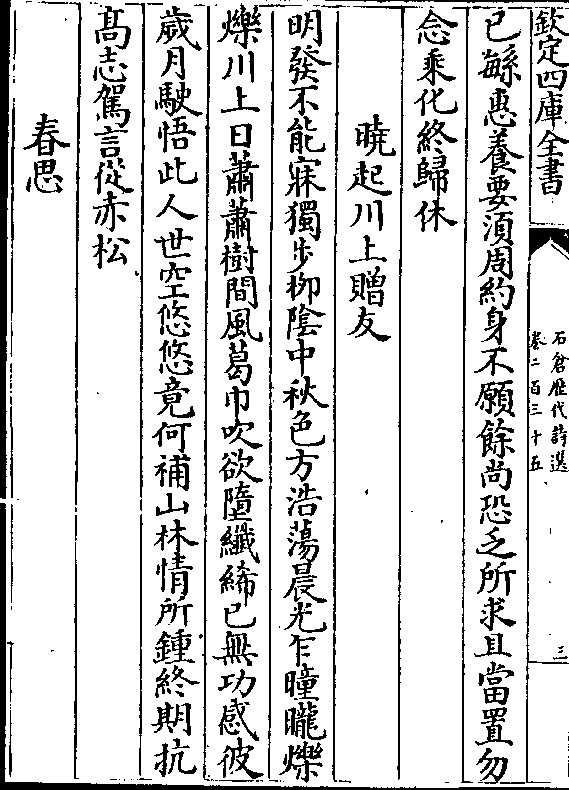 欽定四庫全書
石倉歴代詩選
卷二百三十五
三
已緜恵養要湏周約身不願餘尚恐乏所求且當置勿
念乘化終歸休
曉起川上贈友
明發不能寐獨步栁隂中秋色方浩蕩晨光乍曈曨爍
爍川上日蕭蕭樹間風葛巾吹欲墮纎絺已無功感彼
歲月駛悟此人世空悠悠竟何補山林情所鍾終期抗
髙志駕言從赤松
春思